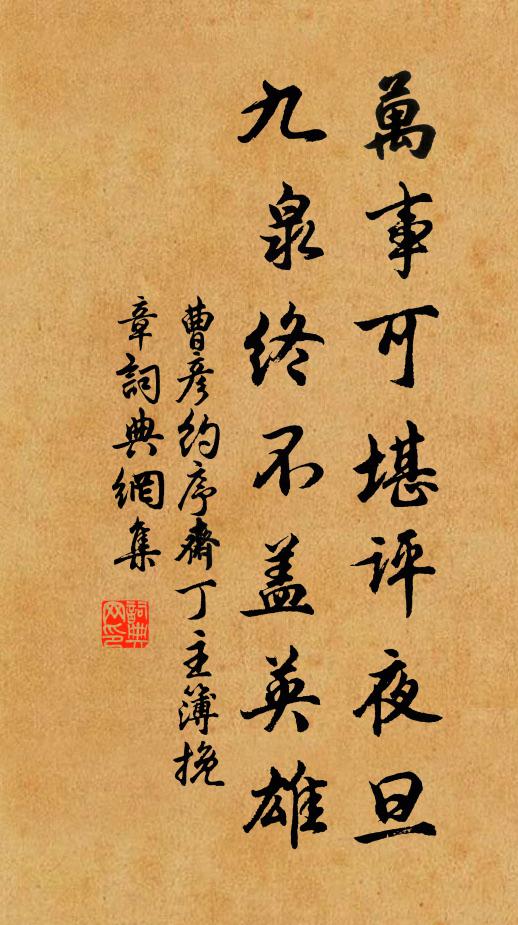 萬事可堪評夜旦
九泉終不蓋英雄
曹彥約序齋丁主簿挽
章詞典網集
詞典
网印